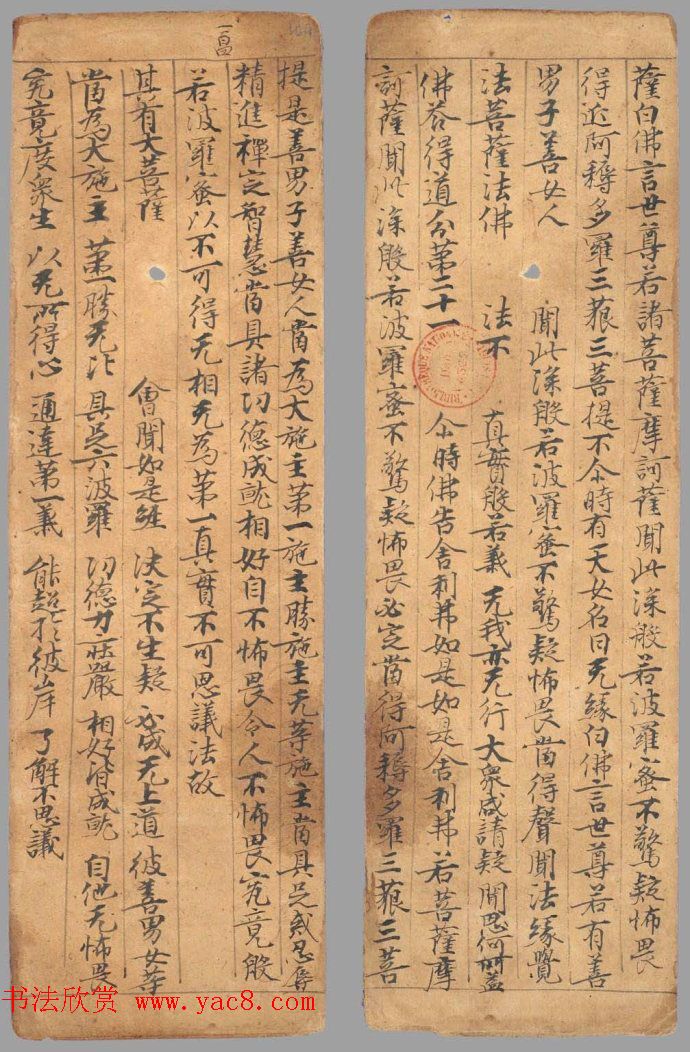 薩白佛言世尊若諸菩薩摩訶薩聞此深般若波羅蜜不驚疑怖畏
得近阿耨多羅三藐三菩提不尒時有天女名曰无緣白佛言世尊若有善
男子善女人 聞此深般若波羅蜜不驚疑怖畏當得聲聞法緣覺
法菩薩法佛 法不 真實般若義 无我亦无行 大衆咸請疑 聞思何所益
佛荅得道分第二十一 尒時佛告舍利弗如是如是舍利弗若菩薩摩
訶薩聞此深般若波羅蜜不驚疑怖畏必定當得阿耨多羅三藐三菩
一百
提是善男子善女人當為大施主第一施主勝施主无等施主當具足戒忍辱
精進禪定智慧當具諸功德成就相好自不怖畏令人不怖畏究竟般
若波羅蜜以不可得无相无為第一真實不可思議法故
其有大菩薩 會聞如是經 決定不生疑 必成无上道 彼善男女等
當為大施主 第一勝无比 具足六波羅 功德力莊嚴 相好皆成就 自他无怖畏
究竟度衆生 以无所得心 通達第一義 能超於彼岸 了解不思議
书法欣赏 www.yac8.com